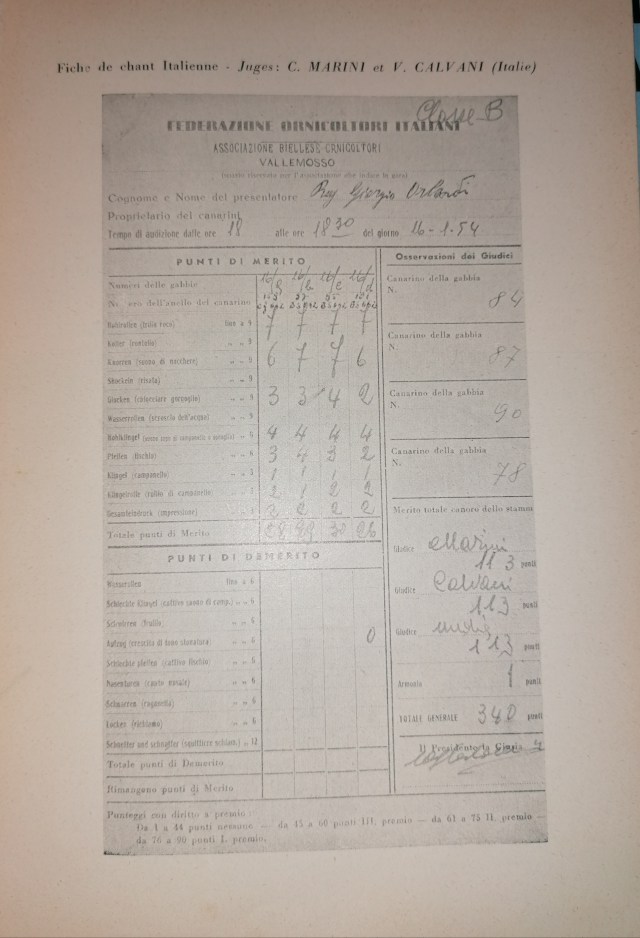 Fiche de chant Italienne - Juges: C. MARINI et V. CALVANI (Italie)
Classe B
FEDERAZIONE ORNICOLTORI ITALIANI
ASSOCIAZIONE BIELLESE ORNICOLTORI
VALLEMOSSO
Cognome e Nome del presentatore Rey Giorgio
Proprietario dei canarini
Tempo di audizione dalle ore 18 alle ore 18 30 del giorno 16-1.54
PUNTI DI MERITO
Numeri delle gabbie
Numero dell'anello del canarino
Hohlrollen fino a 9 7 7 7 7
Koller » » 9
Knorren (suono di nacchere) » » 9 6 7 7 6
Shockeln (risata) » » 9
Glucken (chiocciare gorgoglio) 3 3 4 2
Wasserrollen (scroscio dell'acqua)
Hohlklingel 4 4 4 4
Pfeifen (fischio) 3 4 3 2
Klingel (campanello) 1 1 1 1
Klingelrolle (rullio di campanello) 2 1 2 2
Gesamteindruck (impressione) 2 2 2 2
Totale punti di Merito 28 29 30 26
PUNTI DI DEMERITO
Wasserrollen fino a 6
Schlechte Klingel (cattivo suono di camp.) » » 6
» » 6
Aufzug (crescita di tono stonatura) » » 6 0
Schlechte pfeifen (cattivo fischio) » » 6
Nasentouren (canto nasale) » » 6
Schnarren (raganella) » » 6
Locken (richiamo) » » 6
» 12
Totale punti di Demerito
Rimangono punti di Merito
Osservazioni dei Giudici
Canarino della gabbia
N. 84
Canarino della gabbia
N. 87
Canarino della gabbia
N. 90
Canarino della gabbia
N. 78
Merito totale canoro dello stamm
Giudice Marini
113 punti
Giudice Calvani
113 punti
Giudice media
113 punti
Armonia 1 punti
TOTALE GENERALE 340 punti
Il Presidente la Giuria
Punteggi con diritto a premio:
Da 1 a 44 punti nessuno — da 45 a 60 punti III. premio — da 61 a 75 II. premio —
da 76 a 90 punti I. premio.